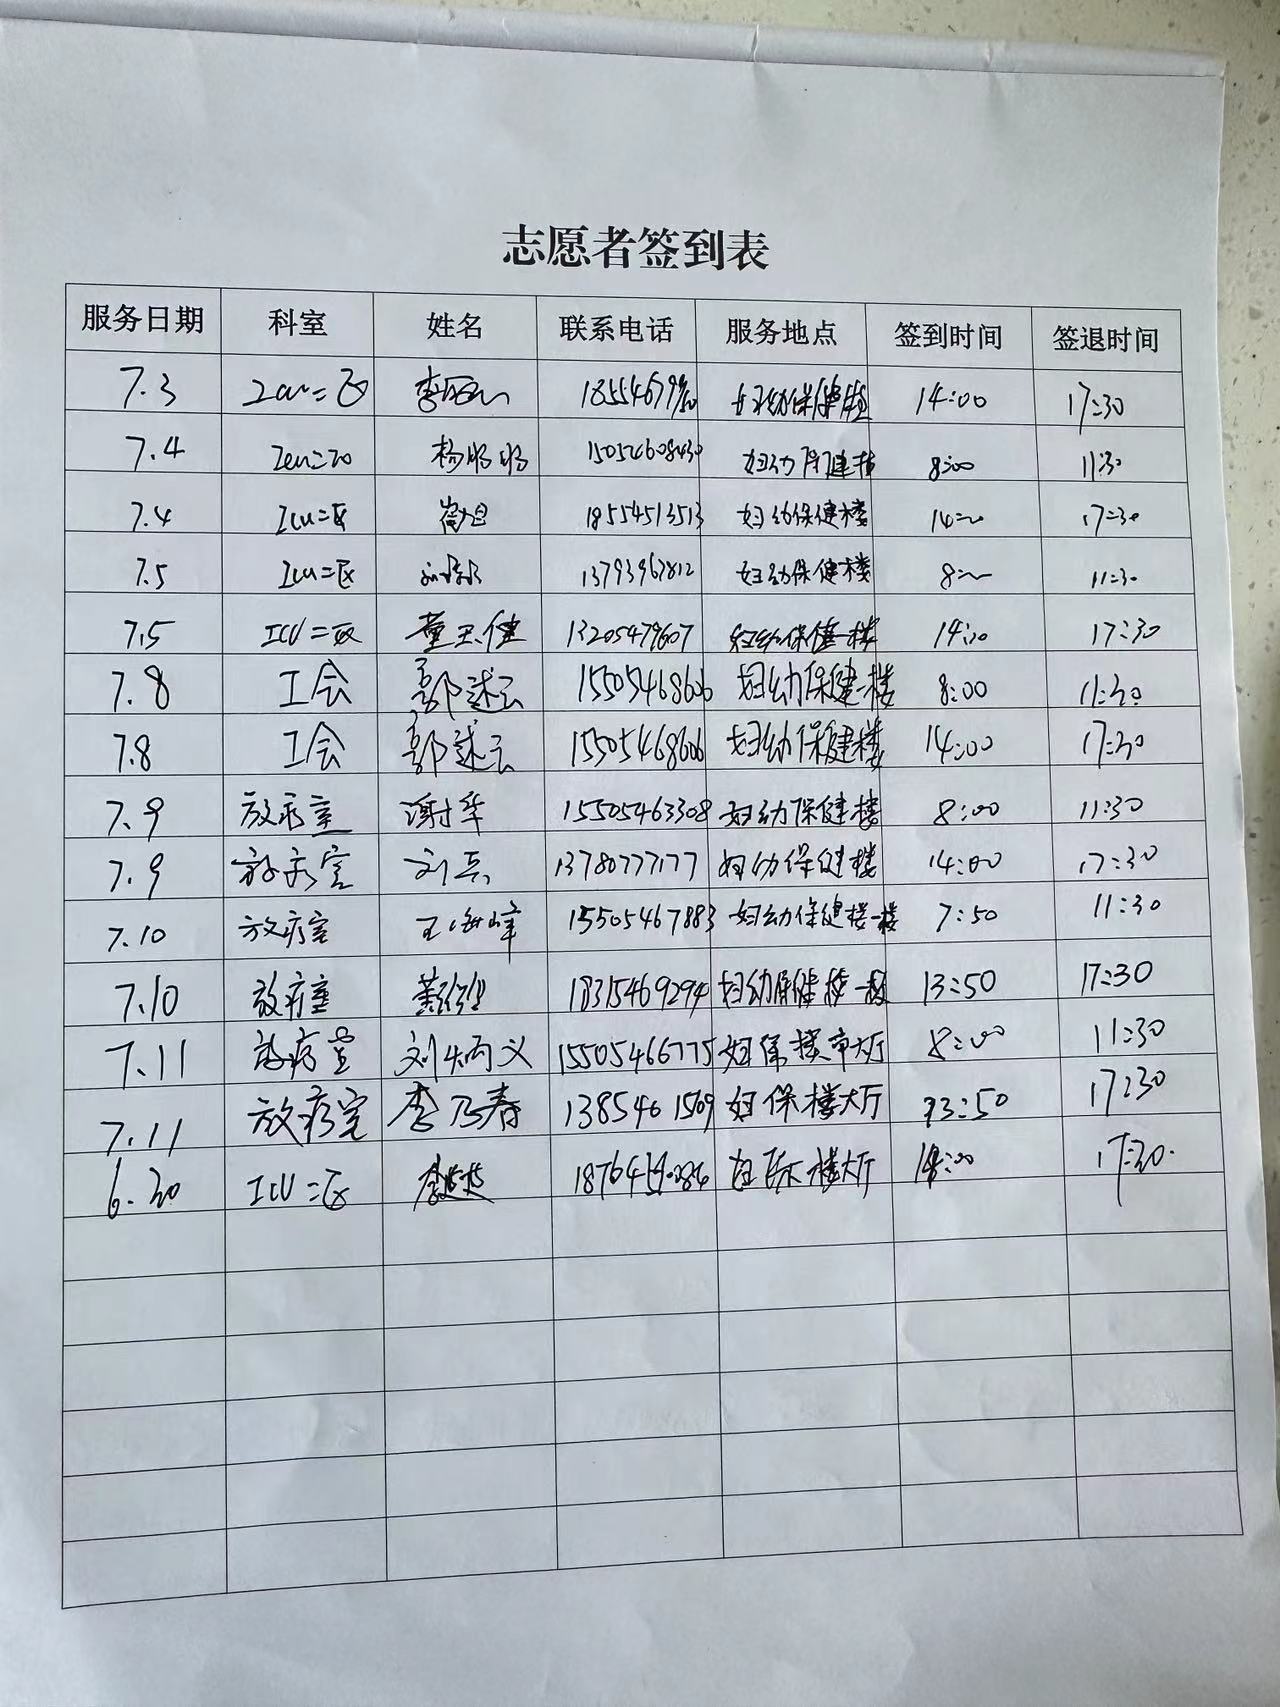 志愿者签到表
服务日期 科室 姓名 联系电话 服务地点 签到时间 签退时间
7.3 ICU二区 妇幼保健楼 14:00 17:30
7.4 ICU二区 杨盼盼 15054608430 妇幼保健楼 8:00 11:30
7.4 ICU二区 18554513513 妇幼保健楼 14:00 17:30
7.5 ICU二区 13793967812 妇幼保健楼 8:00 11:30
7.5 ICU二区 董玉健 13205479607 妇幼保健一楼 14:00 17:30
7.8 工会 郭述云 15505468606 妇幼保健一楼 8:00 11:30
7.8 工会 郭述云 15505468606 妇幼保健楼 14:00 17:30
7.9 放疗室 谢华 15505463308 妇幼保健楼 8:00 11:30
7.9 放疗室 刘兵 13780777177 妇幼保健楼 14:00 17:30
7.10 放疗室 王海峰 15505467883 妇幼保健楼一楼 7:50 11:30
7.10 放疗室 18315469294 妇幼保健楼一楼 13:50 17:30
7.11 放疗室 刘炳义 15505466775 妇保楼大厅 8:00 11:30
7.11 放疗室 李乃春 1385461509 妇保楼大厅 13:50 17:30
6.30 ICU二区 妇保楼大厅 14:00 17:30